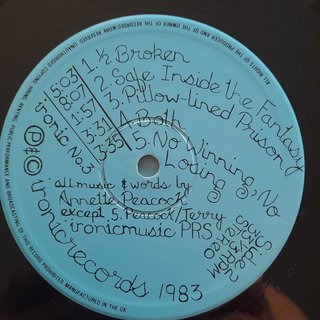 ALL RIGHTS OF THE PRODUCER AND OF THE OWNER OF THE RECORDED WORK RESERVED. UNAUTHORISED COPYING, HIRING, RENTING, PUBLIC PERFORMANCE AND BROADCASTING OF THIS RECORD PROHIBITED. MANUFACTURED IN THE UK
5:03 1. ½ Broken
8:07 2. Safe Inside the Fantasy
1:57 3. Pillow-lined Prison
3:31 4. Both
3:35 5. No Winning, No Losing
ironic No.3
all music & words by
Annette Peacock
except 5. Peacock/Terry
ironicmusic PRS
Side 2
33⅓ RPM
℗&© ironicrecords 1983